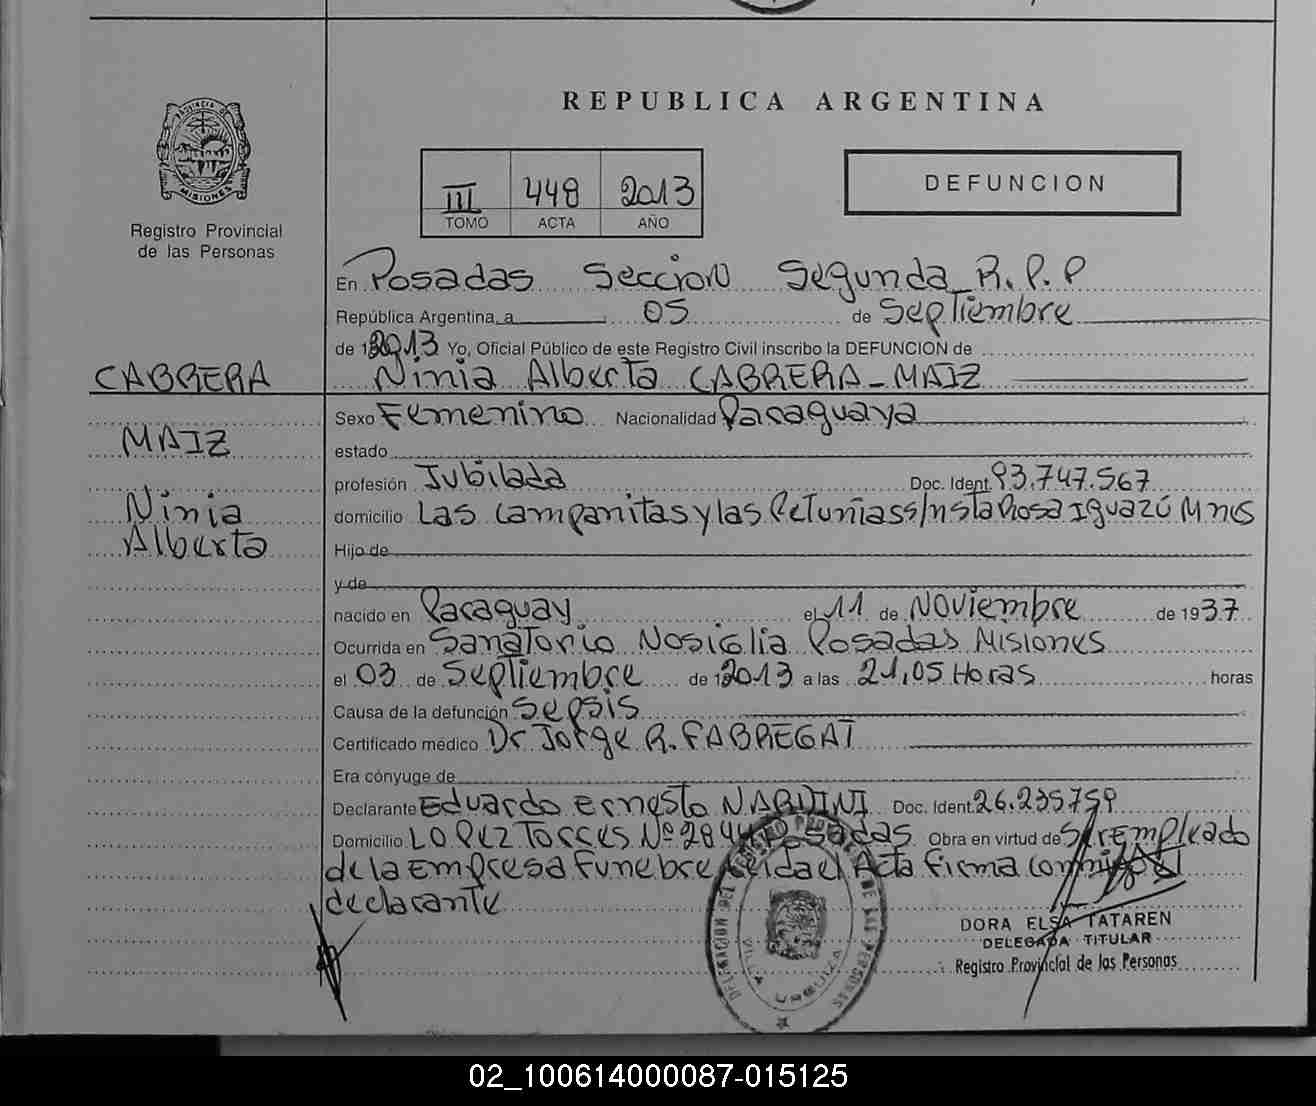 REPUBLICA ARGENTINA
PROVINCIA DE
MISIONES
Registro Provincial
de las Personas
III 448 2013
TOMO ACTA AÑO
DEFUNCION
En Posadas Seccion Segunda R.P.P
República Argentina, a 05 de Septiembre
de 2013 Yo, Oficial Público de este Registro Civil inscribo la DEFUNCION de
CABRERA
Ninia Alberta CABRERA-MAIZ
Sexo Femenino Nacionalidad Paraguaya
MAIZ
estado
profesión Jubilada Doc. Ident. 93.747.567
Ninia
domicilio Las Campanitas y las Petunias S/n Sta Rosa Iguazú Mnes
Alberta
Hijo de
y de
nacido en Paraguay el 11 de Noviembre de 1937
Ocurrida en Sanatorio Nosiglia Posadas Misiones
el 03 de Septiembre de 2013 a las 21,05 Horas horas
Causa de la defunción Sepsis
Certificado médico Dr Jorge R. FABREGAT
Era cónyuge de
Declarante Eduardo Ernesto NARDINI Doc. Ident. 26.235759
Domicilio LOPEZ TORRES Nº 2844 Posadas Obra en virtud de Ser Empleado
de la Empresa Funebre Leida el Acta Firma conmigo el
declarante
DORA ELSA TATAREN
DELEGADA TITULAR
Registro Provincial de las Personas
VILLA URQUIZA
02_100614000087-015125